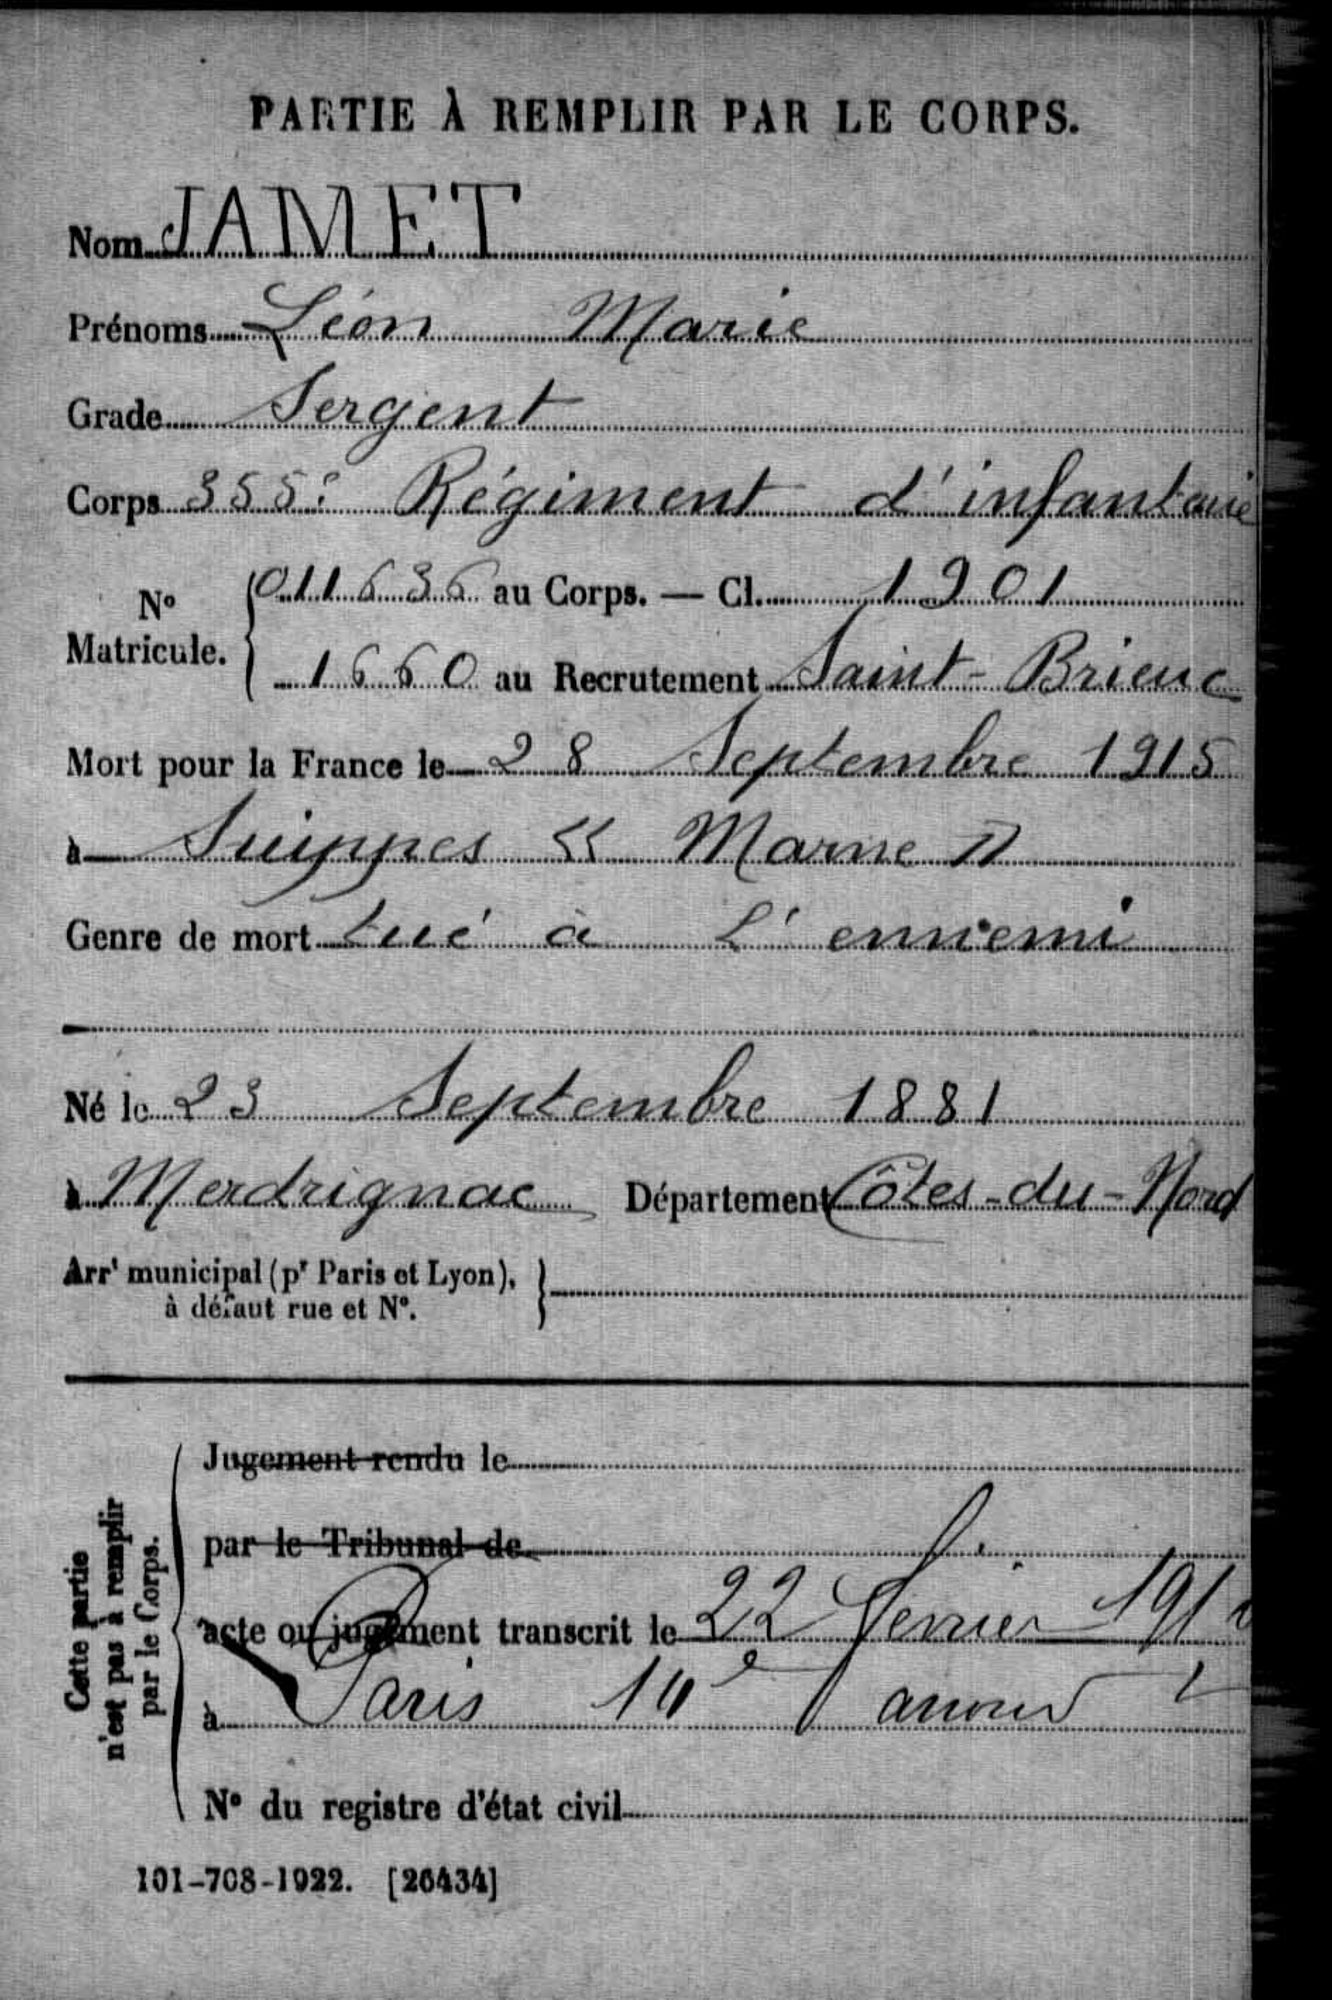 PARTIE À REMPLIR PAR LE CORPS.
Nom JAMET
Prénoms Léon Marie
Grade Sergent
Corps 355e Régiment d'infanterie
No Matricule. 011636 au Corps. — Cl. 1901
1660 au Recrutement Saint-Brieuc
Mort pour la France le 28 Septembre 1915
à Suippes « Marne »
Genre de mort tué à L'ennemi
Né le 23 Septembre 1881
à Merdrignac Département Côtes-du-Nord
Arrt municipal (pr Paris et Lyon),
à défaut rue et No.
Cette partie
n'est pas à remplir
par le Corps.
Jugement rendu le
par le Tribunal de
acte ou jugement transcrit le 22 Février
à Paris arrond
No du registre d'état civil
101-708-1922. [26434]